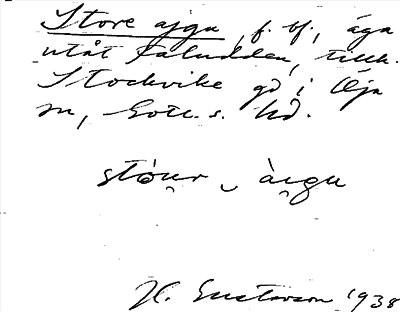 Store ajgu, f. bf., äga
utåt Faludden, tillh.
Stockvike gd i Öja
sn, Gotl. s. hd.
stóu̯r ‿ àɪ̯gu
H. Gustavson 1938